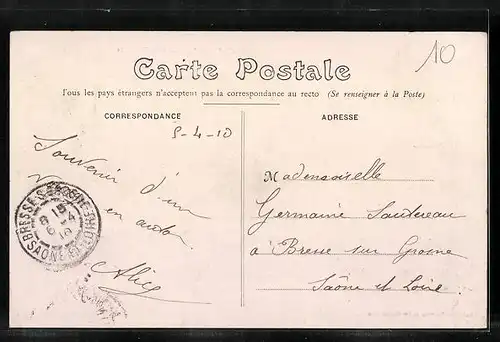 10
Carte Postale
Tous les pays étrangers n'acceptent pas la correspondance au recto (Se renseigner à la Poste)
CORRESPONDANCE
ADRESSE
5-4-10
Souvenir d'un
en auto
Alice
Mademoiselle
Germaine Sautereau
à Bresse sur Grosne
Saône et Loire
BRESSE-S-GROSNE
SAONE-ET-LOIRE